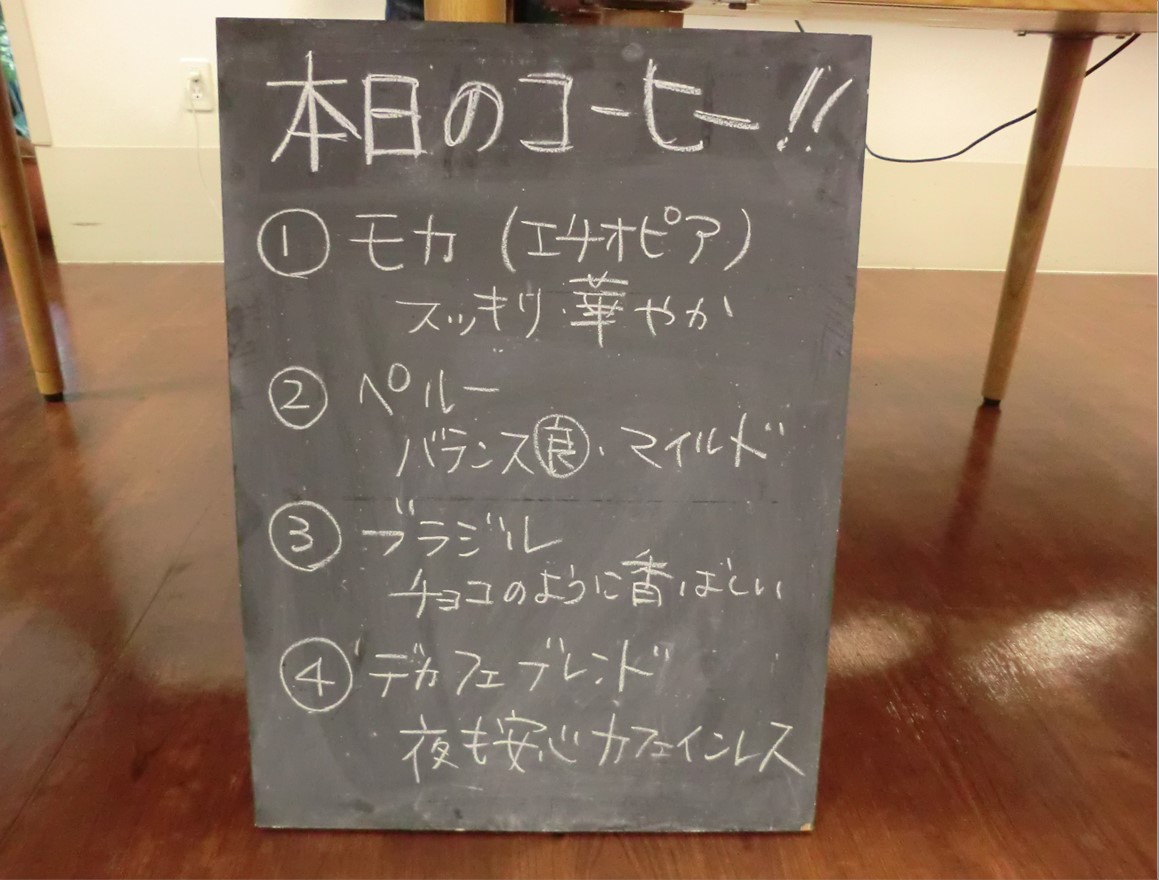 本日のコーヒー!!
① モカ (エチオピア)
スッキリ・華やか
② ペルー
バランス良・マイルド
③ ブラジル
チョコのように香ばしい
④ デカフェブレンド
夜も安心カフェインレス